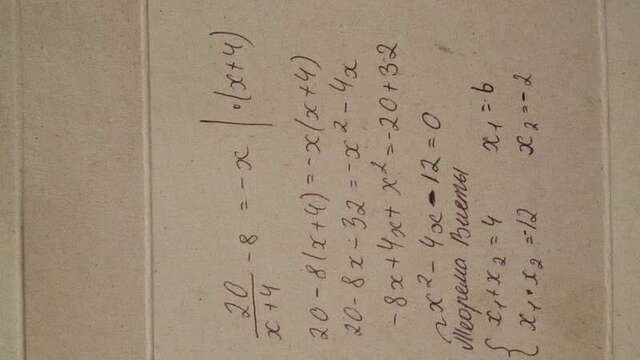 20/(x+4) - 8 = -x | ·(x+4)
20 - 8(x+4) = -x(x+4)
20 - 8x - 32 = -x² - 4x
-8x + 4x + x² = -20 + 32
x² - 4x - 12 = 0
Теорема Виеты
{ x₁ + x₂ = 4 x₁ = 6
{ x₁ · x₂ = -12 x₂ = -2